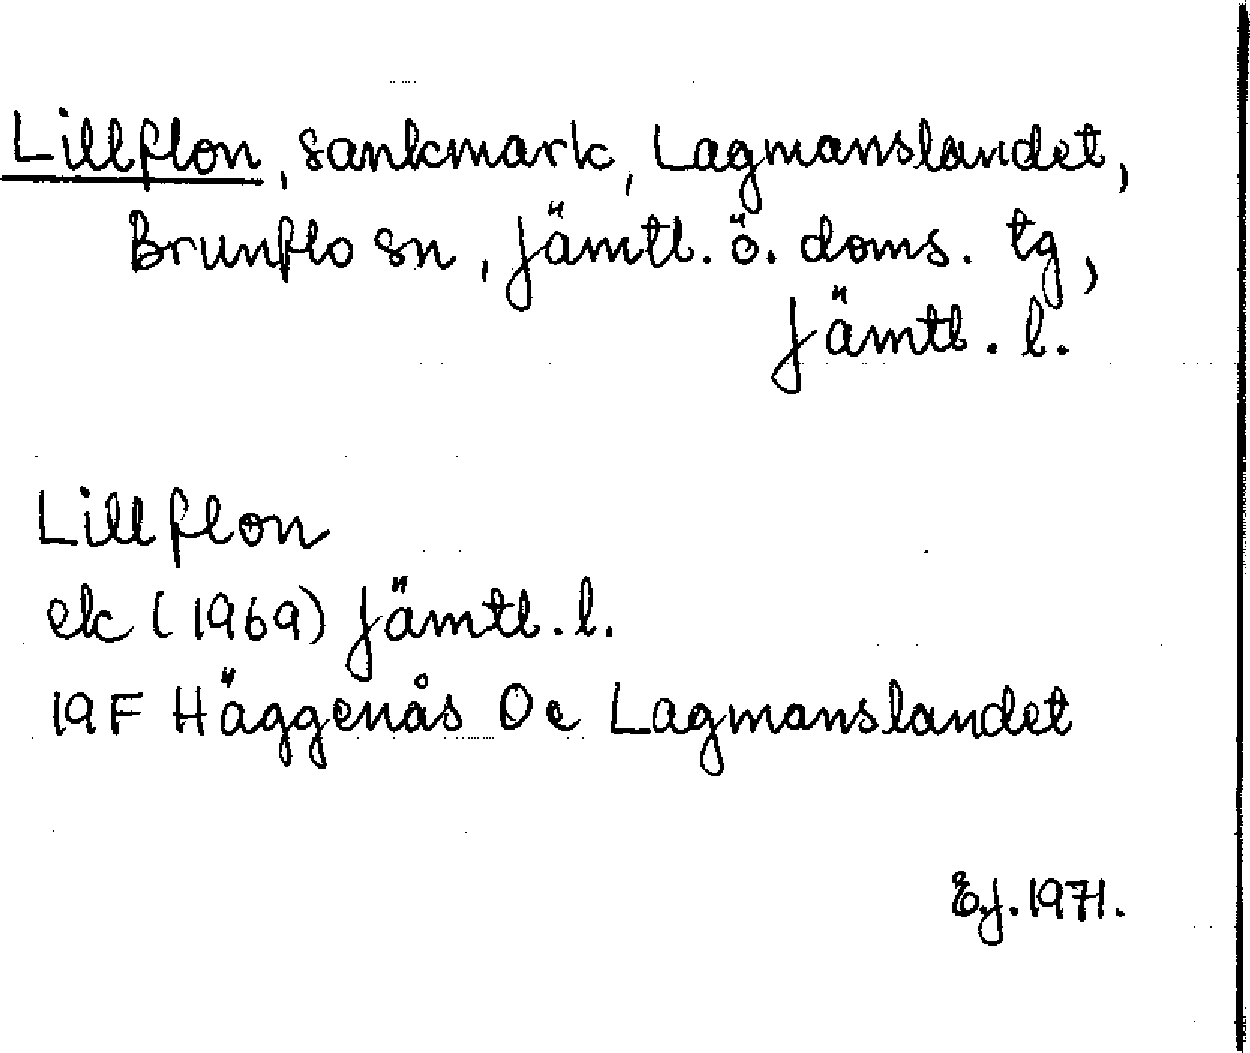 Lillflon, sankmark, Lagmanslandet,
Brunflo sn, Jämtl. ö. doms. tg,
Jämtl. l.
Lillflon
ek (1969) Jämtl. l.
19F Häggenås Oc Lagmanslandet
E.J. 1971.